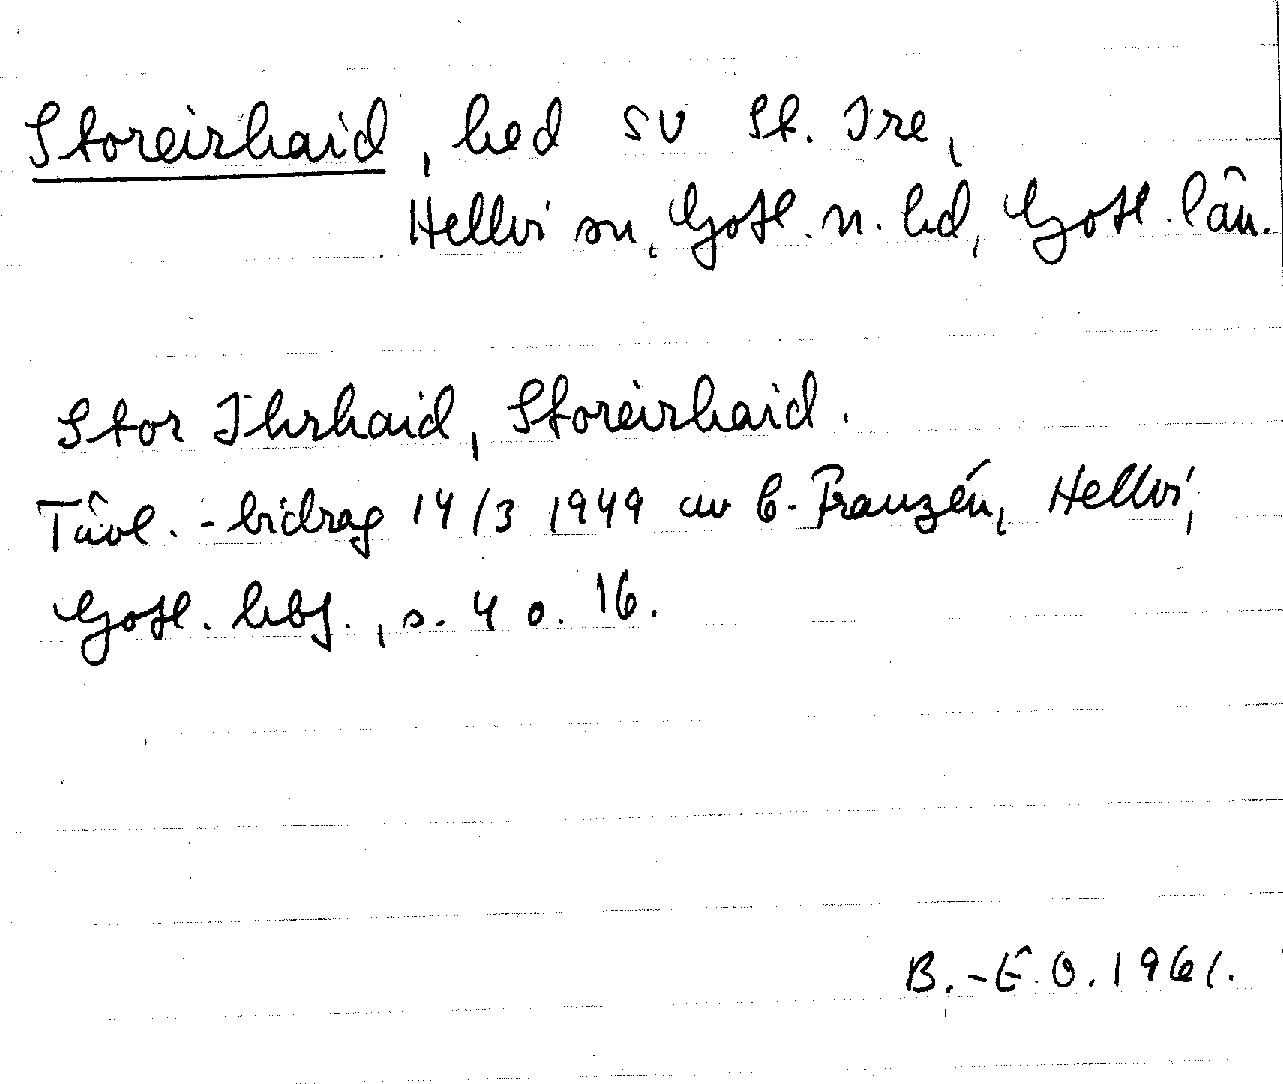 Storeirhaid, hed SV St. Ire,
Hellvi sn, Gotl. n. hd, Gotl. län.
Stor Ihrhaid, Storeirhaid.
Tävl.-bidrag 14/3 1949 av C. Franzén, Hellvi,
Gotl. hbf., s. 4 o. 16.
B.-E.O. 1961.